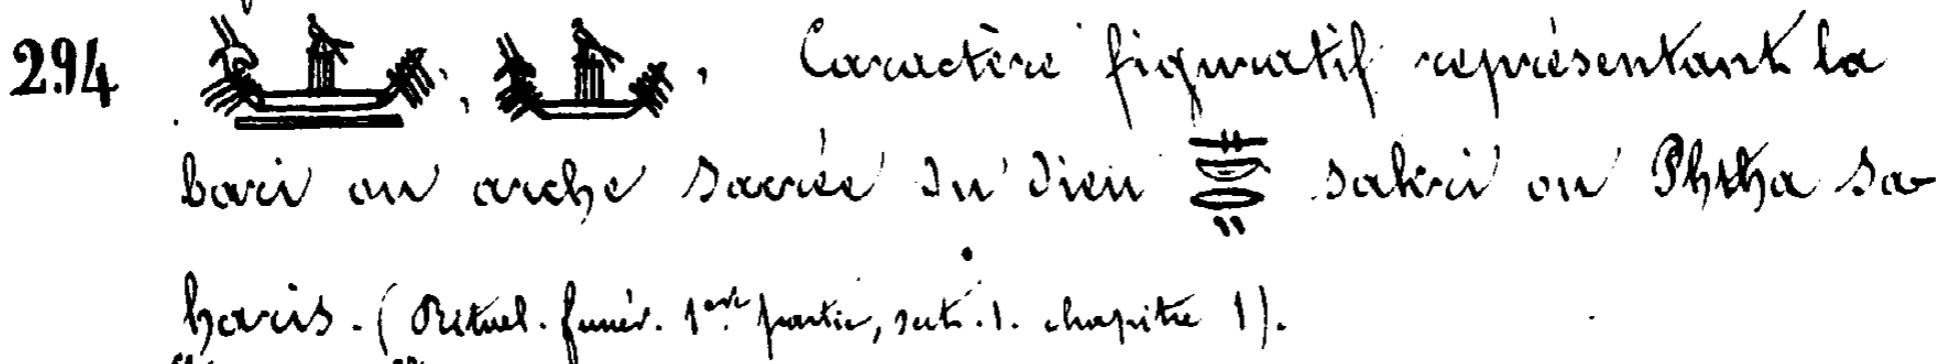 294 , . Caractère figuratif représentant la
bari ou arche sacrée du dieu sakri ou Phtha sa
karis. (Rituel. funér. 1ère partie, sect. 1. chapitre 1).